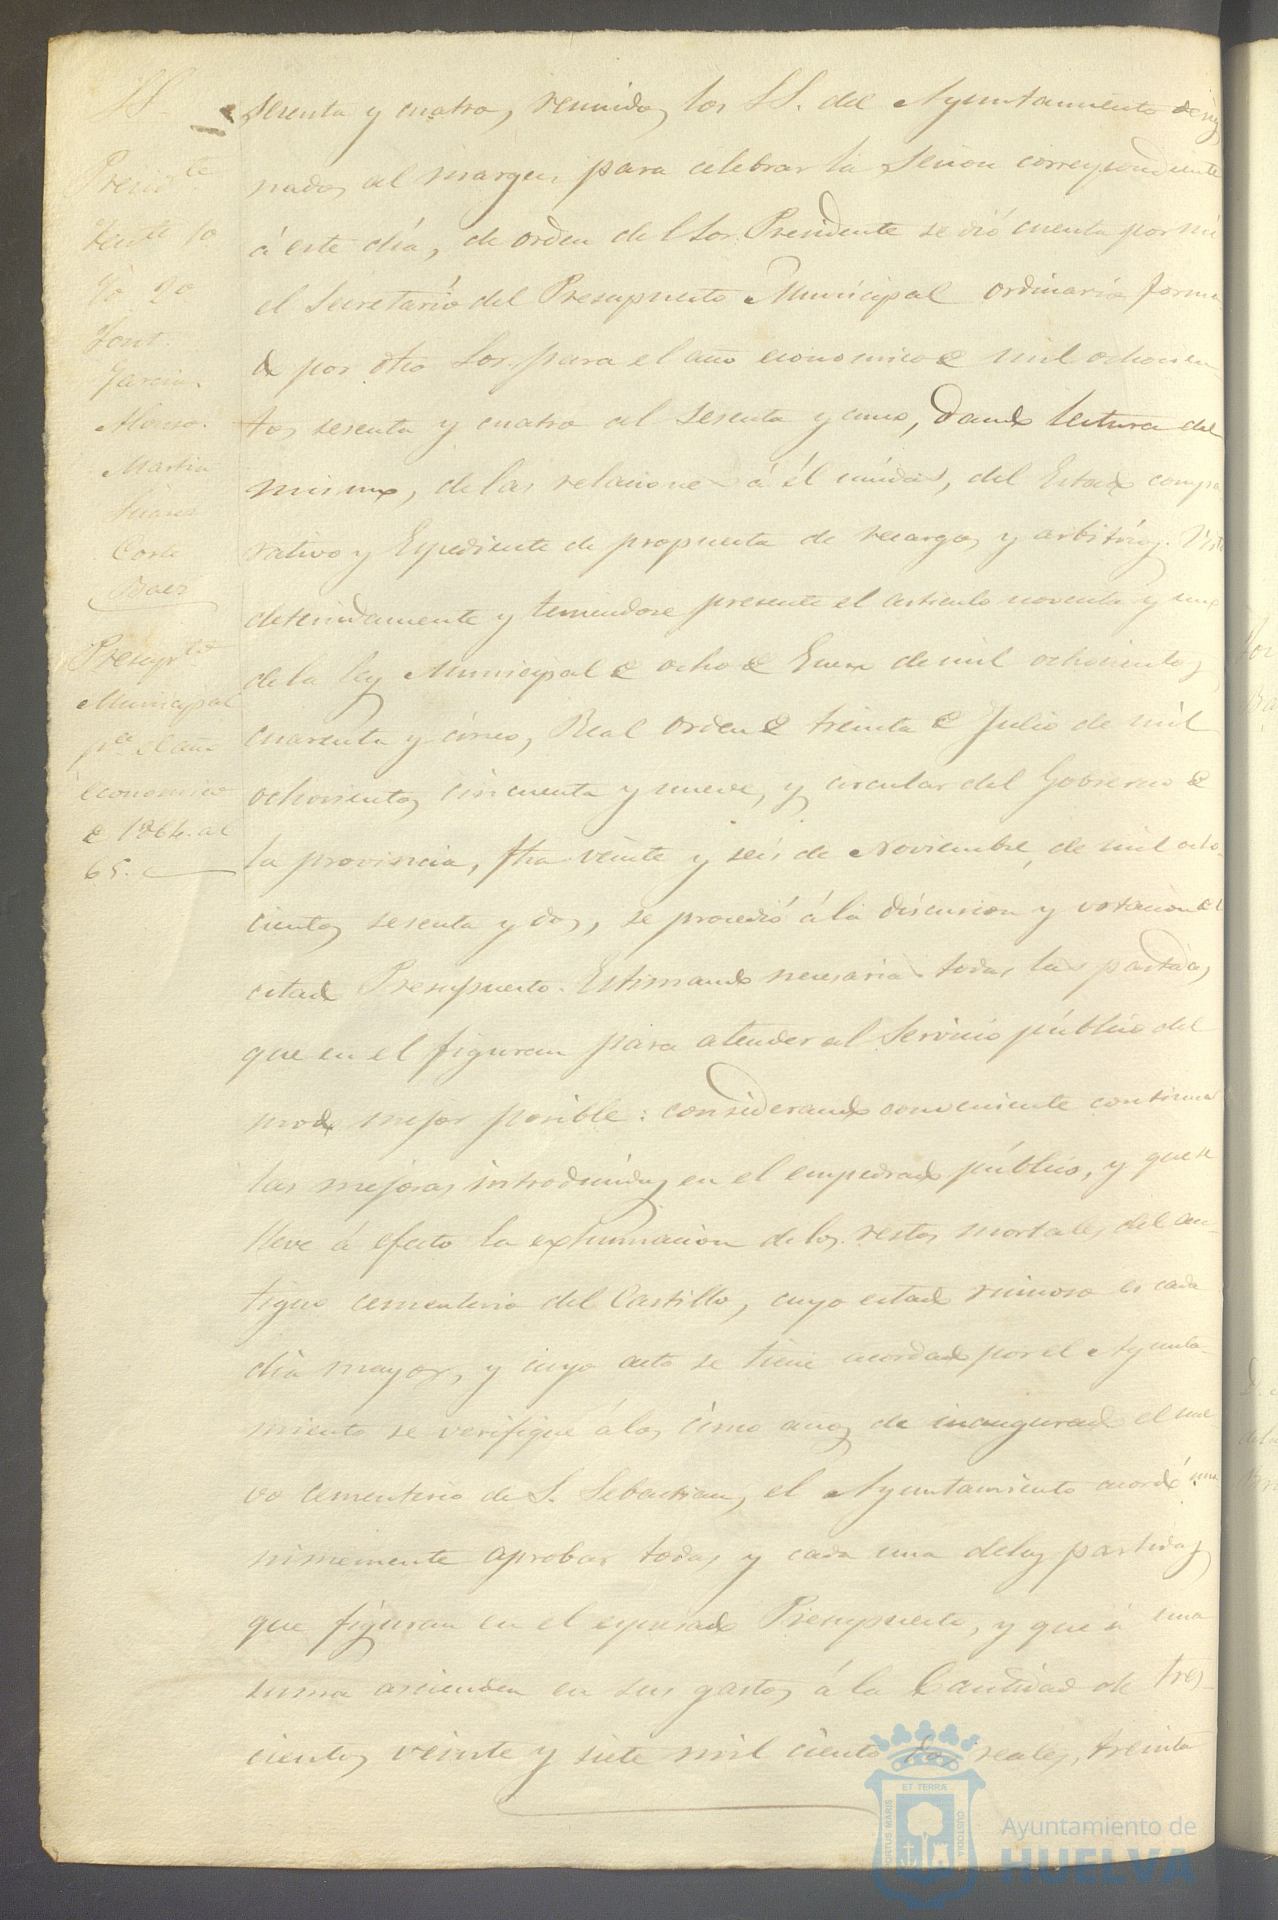 SS.
Presid.te
Tente 1o
Yo 2o
Font.
Garcia.
Alonso.
Martin
Suarez
Corte
Baez
Presup.to
Municipal
pa. el año
economico
de 1864. al
65.
sesenta y cuatro, reunidos los SS. del Ayuntamiento desig
nados al margen para celebrar la Sesion correspondiente
á este dia, de orden del Sor. Presidente se dió cuenta por mi
el Secretario del Presupuesto Municipal ordinario forma
do por dho Sor. para el año economico de mil ochocien
tos sesenta y cuatro al sesenta y cinco, dando lectura del
mismo, de las relaciones á él unidas, del Estado compa
rativo y Expediente de propuesta de recargos y arbitrios. Visto
detenidamente y teniendose presente el articulo noventa y uno
de la ley Municipal de ocho de Enero de mil ochocientos
cuarenta y cinco, Real orden de treinta de Julio de mil
ochocientos cincuenta y nueve, y circular del Gobierno de
la provincia, fha veinte y seis de Noviembre de mil ocho-
cientos sesenta y dos, se procedió á la discusion y votacion del
citado Presupuesto. Estimando necesarias todas las partidas
que en el figuran para atender al Servicio público del
modo mejor posible: considerando conveniente continuar
las mejoras introducidas en el empedrado público, y que se
lleve á efecto la exhumacion de los restos mortales del an-
tiguo cementerio del Castillo, cuyo estado ruinoso es cada
dia mayor, y cuyo acto se tiene acordado por el Ayunta-
miento se verifique á los cinco años de inaugurado el nue
vo cementerio de S. Sebastian, el Ayuntamiento acordó una
nimemente aprobar todas y cada una de las partidas
que figuran en el expresado Presupuesto, y que á una
suma ascienden en sus gastos á la Cantidad de tres-
cientos veinte y siete mil ciento dos reales, treinta
ET TERRA
PORTUS MARIS
CUSTODIA
Ayuntamiento de
HUELVA